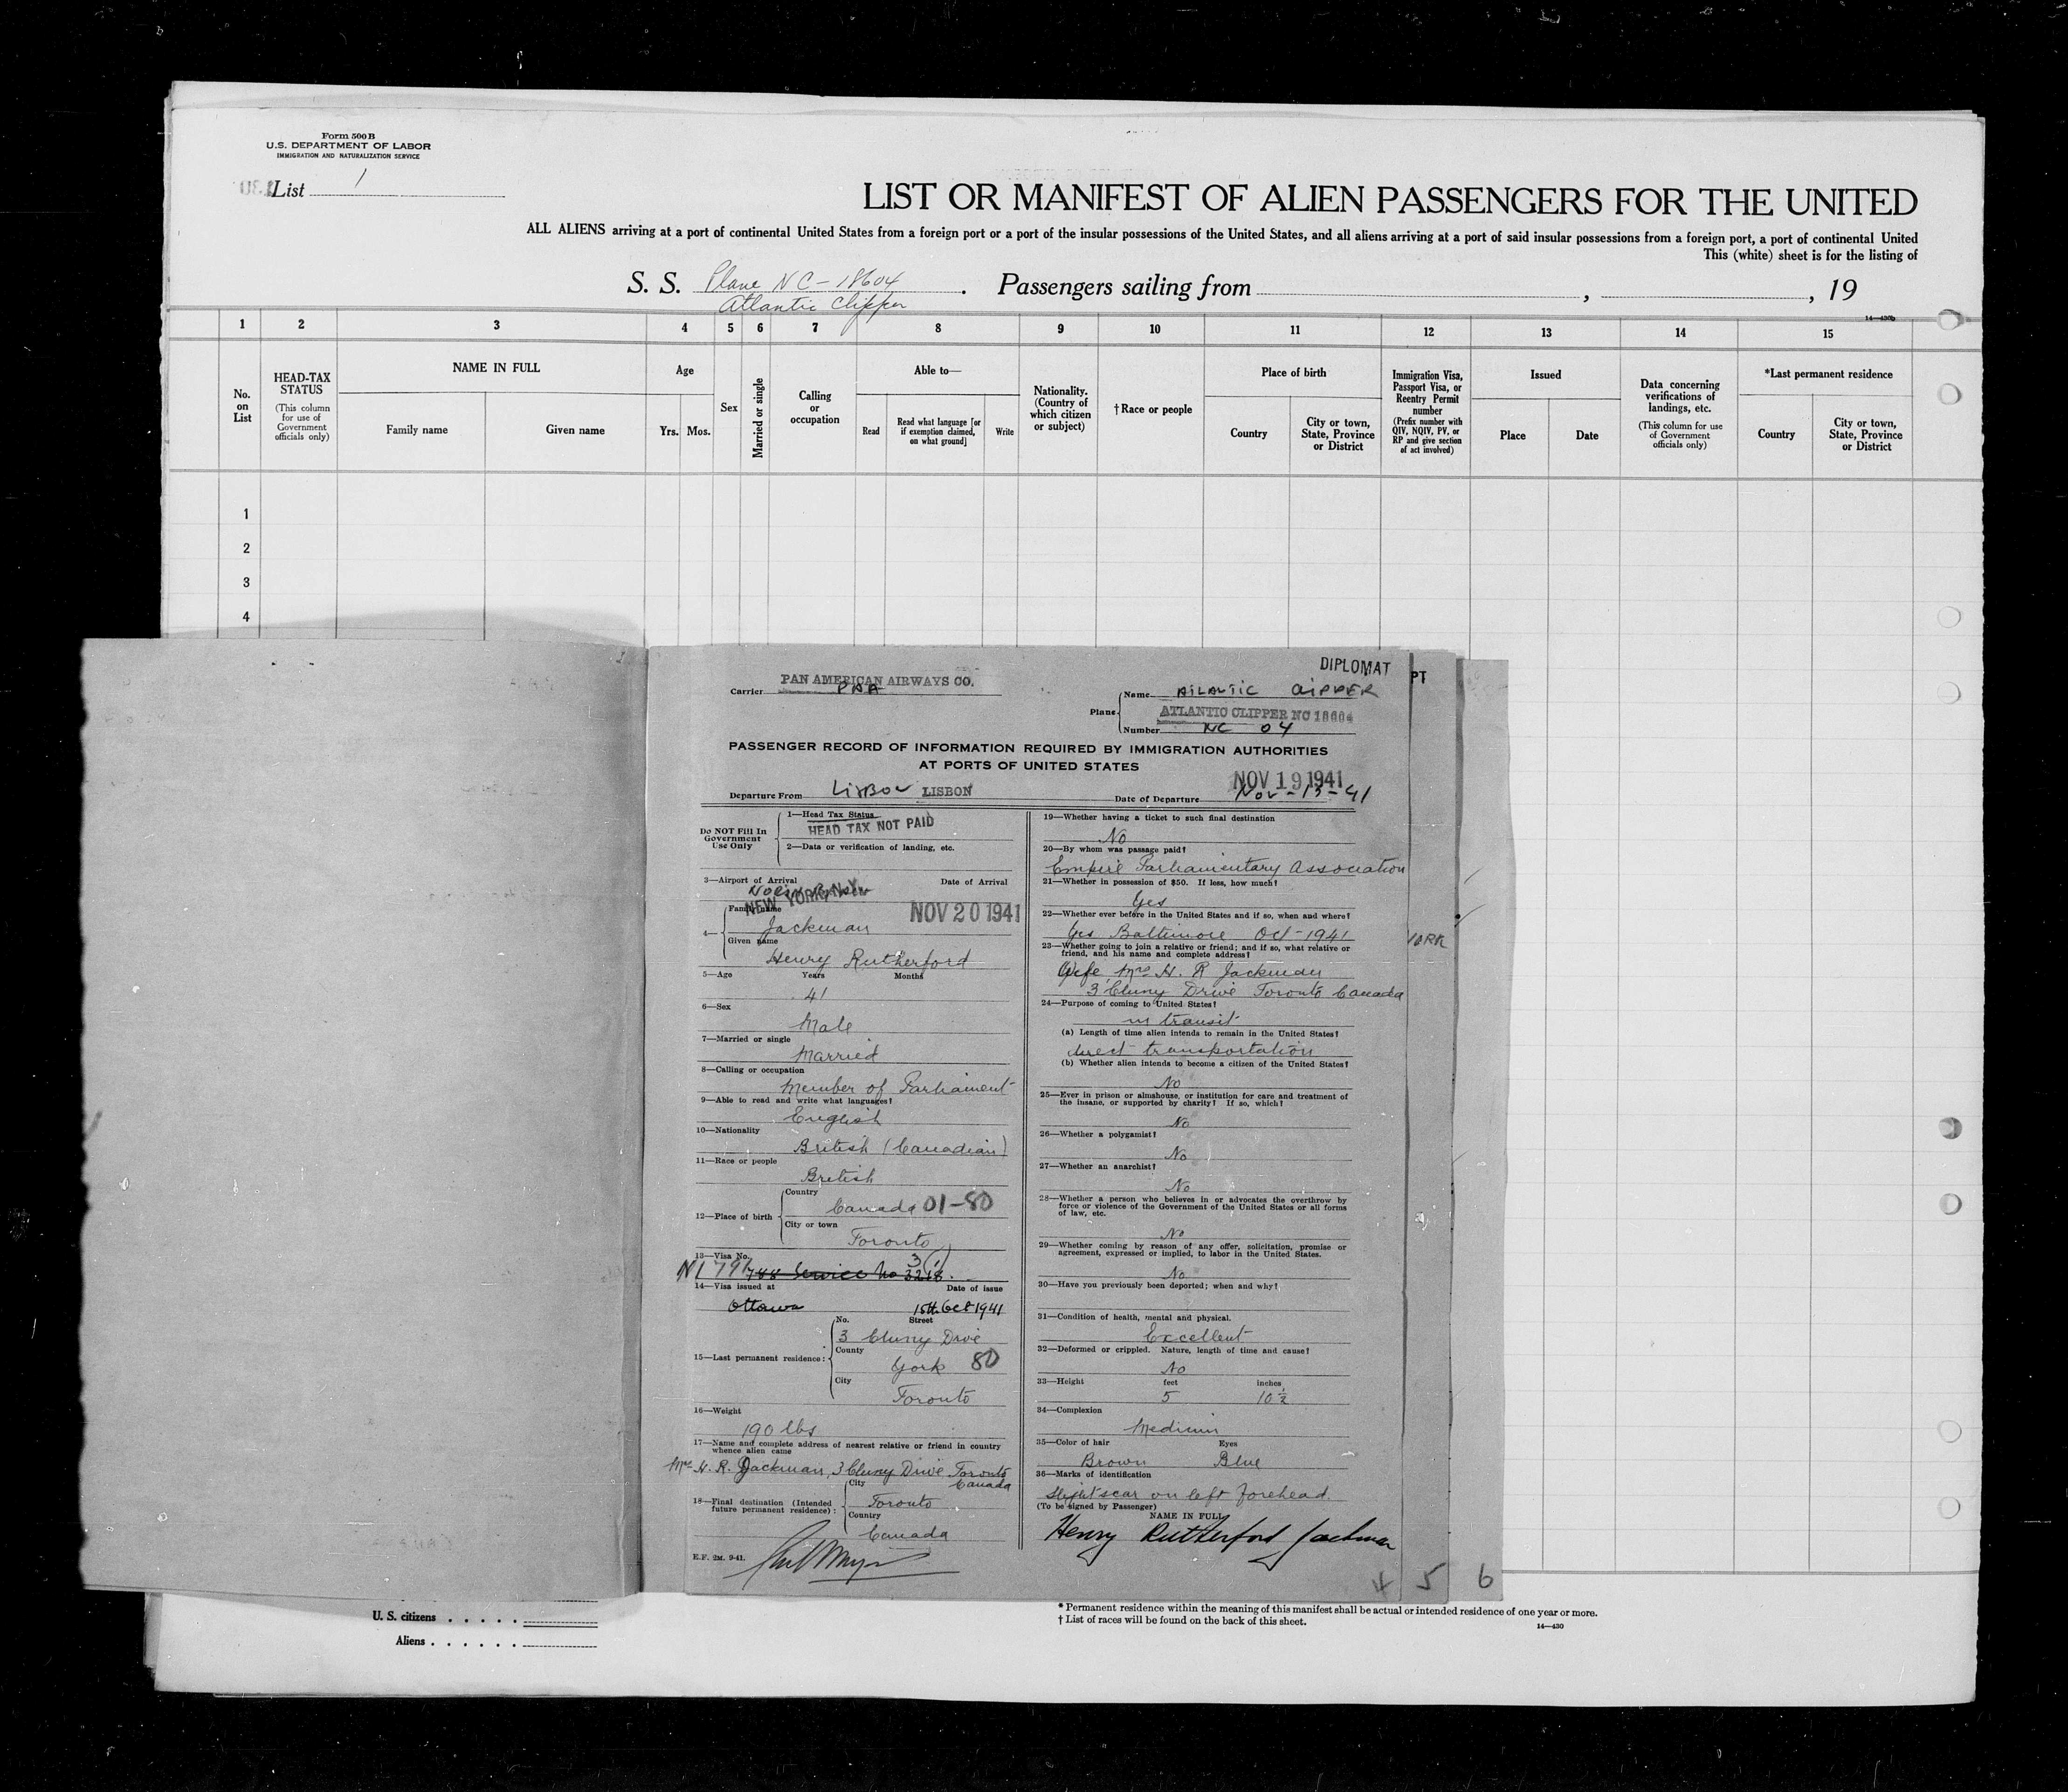 Form 500 B
U.S. DEPARTMENT OF LABOR
IMMIGRATION AND NATURALIZATION SERVICE
List 1
LIST OR MANIFEST OF ALIEN PASSENGERS FOR THE UNITED
ALL ALIENS arriving at a port of continental United States from a foreign port or a port of the insular possessions of the United States, and all aliens arriving at a port of said insular possessions from a foreign port, a port of continental United
This (white) sheet is for the listing of
S. S. Plane NC-18604 . Passengers sailing from , , 19
Atlantic Clipper
14—430b
1 2 3 4 5 6 7 8 9 10 11 12 13 14 15
No. on List
HEAD-TAX STATUS
(This column for use of Government officials only)
NAME IN FULL
Family name
Given name
Age
Yrs. Mos.
Sex
Married or single
Calling or occupation
Able to—
Read
Read what language [or if exemption claimed, on what ground]
Write
Nationality. (Country of which citizen or subject)
† Race or people
Place of birth
Country
City or town, State, Province or District
Immigration Visa, Passport Visa, or Reentry Permit number
(Prefix number with QIV, NQIV, PV, or RP and give section of act involved)
Issued
Place
Date
Data concerning verifications of landings, etc.
(This column for use of Government officials only)
*Last permanent residence
Country
City or town, State, Province or District
1
2
3
4
DIPLOMAT
PT
PAN AMERICAN AIRWAYS CO.
Carrier PAA
Plane
Name ATLANTIC CLIPPER
ATLANTIC CLIPPER NC 18604
Number NC 04
PASSENGER RECORD OF INFORMATION REQUIRED BY IMMIGRATION AUTHORITIES
AT PORTS OF UNITED STATES
Departure From Lisbon LISBON
NOV 19 1941
Date of Departure Nov-13-41
Do NOT Fill In Government Use Only
1—Head Tax Status
HEAD TAX NOT PAID
2—Data or verification of landing, etc.
3—Airport of Arrival Date of Arrival
NEW YORK, N.Y.
NOV 20 1941
4—
Family name
Jackman
Given name
Henry Rutherford
5—Age Years Months
41
6—Sex
Male
7—Married or single
Married
8—Calling or occupation
Member of Parliament
9—Able to read and write what languages?
English
10—Nationality
British (Canadian)
11—Race or people
British
12—Place of birth
Country
Canada 01-80
City or town
Toronto
13—Visa No.
3(1)
788 Service No 3218.
14—Visa issued at Date of issue
Ottawa 15th Oct 1941
15—Last permanent residence:
No. Street
3 Cluny Drive
County
York 80
City
Toronto
16—Weight
190 lbs
17—Name and complete address of nearest relative or friend in country
whence alien came
Mrs H. R. Jackman, 3 Cluny Drive Toronto
Canada
18—Final destination (Intended future permanent residence):
City
Toronto
Country
Canada
E.F. 2M. 9-41.
19—Whether having a ticket to such final destination
No
20—By whom was passage paid?
Empire Parliamentary Association
21—Whether in possession of $50. If less, how much?
Yes
22—Whether ever before in the United States and if so, when and where?
Yes Baltimore Oct-1941
YORK
23—Whether going to join a relative or friend; and if so, what relative or
friend, and his name and complete address?
Wife Mrs H. R Jackman
3 Cluny Drive Toronto Canada
24—Purpose of coming to United States?
in transit
(a) Length of time alien intends to remain in the United States?
direct transportation
(b) Whether alien intends to become a citizen of the United States?
No
25—Ever in prison or almshouse, or institution for care and treatment of
the insane, or supported by charity? If so, which?
No
26—Whether a polygamist?
No
27—Whether an anarchist?
No
28—Whether a person who believes in or advocates the overthrow by
force or violence of the Government of the United States or all forms
of law, etc.
No
29—Whether coming by reason of any offer, solicitation, promise or
agreement, expressed or implied, to labor in the United States.
No
30—Have you previously been deported; when and why?
31—Condition of health, mental and physical.
Excellent
32—Deformed or crippled. Nature, length of time and cause?
No
33—Height feet inches
5 10 1/2
34—Complexion
Medium
35—Color of hair Eyes
Brown Blue
36—Marks of identification
slight scar on left forehead.
(To be signed by Passenger)
NAME IN FULL
Henry Rutherford Jackman
4 5 6
U. S. citizens . . . . .
Aliens . . . . . .
* Permanent residence within the meaning of this manifest shall be actual or intended residence of one year or more.
† List of races will be found on the back of this sheet.
14—430